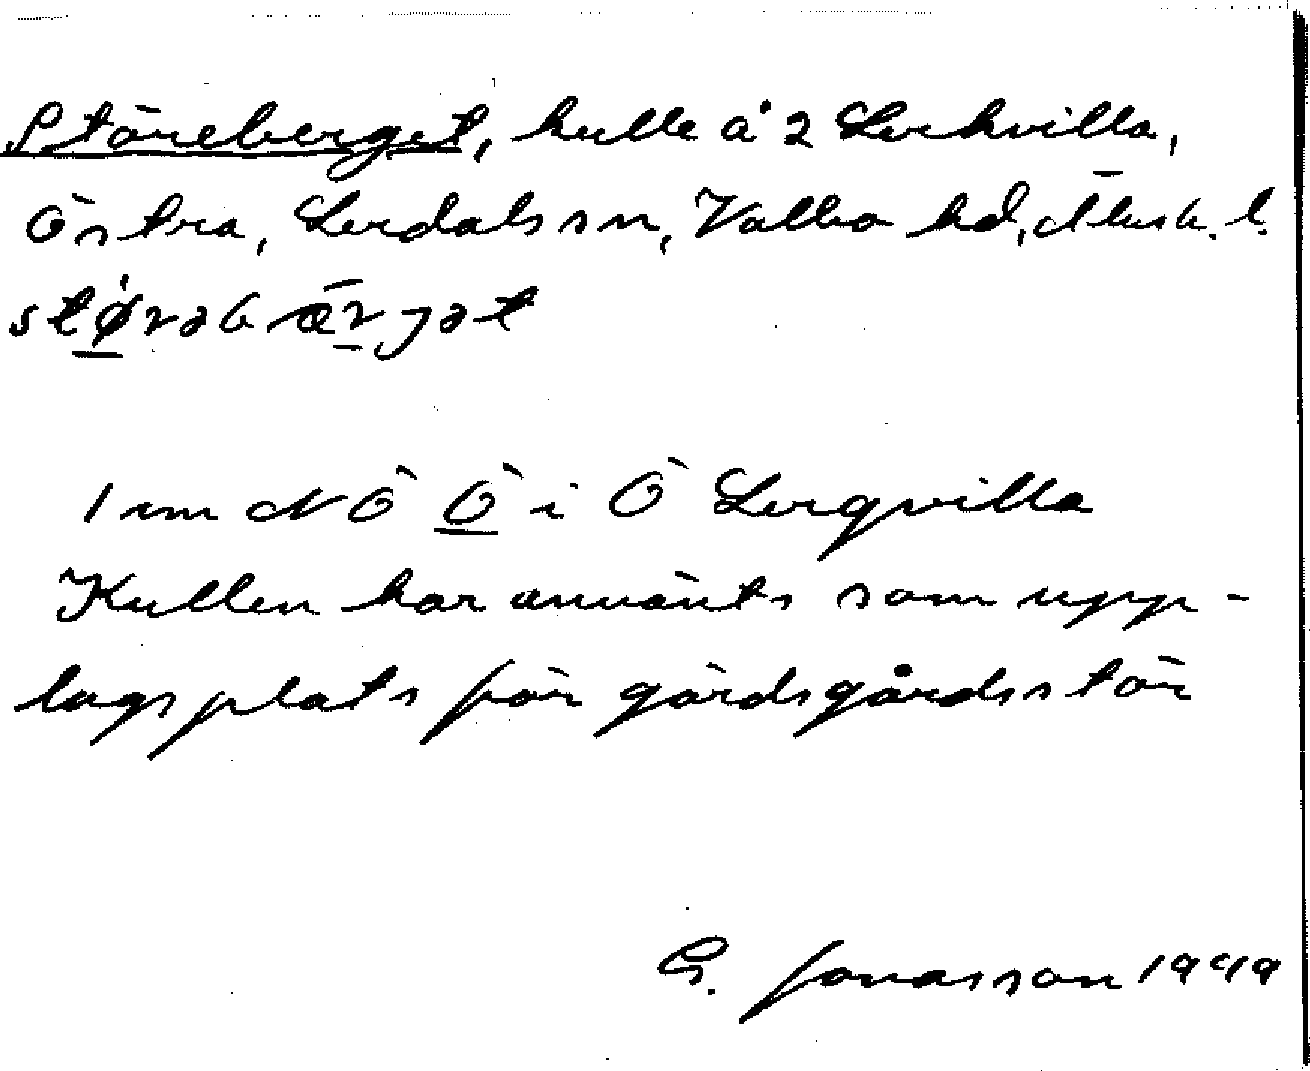 Störeberget, kulle å 2 Lerkvilla,
Östra, Lerdals sn, Valbo hd, Älvsb. l.
stø̀rabæ̅rjət
1 mm NÖ Ö i Ö Lergvilla
Kullen har använts som upp-
lagsplats för gärdsgårdsstör
G. Jonasson 1949